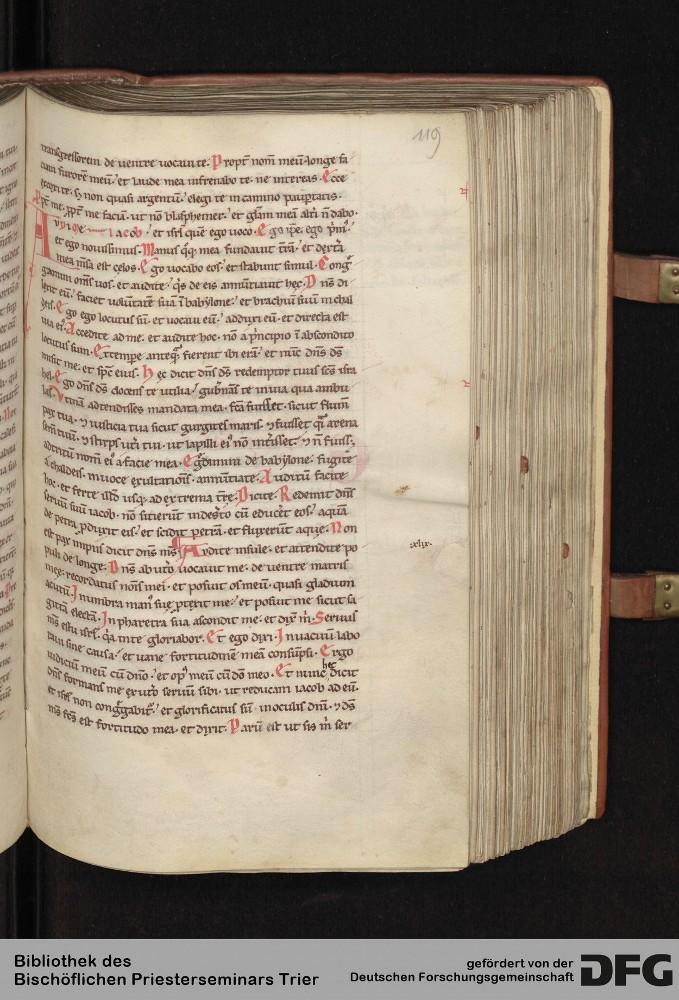 119
transgressorem de ventre vocavi te. Propt̄ nom̄ meū longe fa
ciam furorē meū. et laude mea infrenabo te. ne intereas. Ecce
excoxi te. s̄ non quasi argentū. elegi te in camino paup̄tatis.
pt̄ me. ppt̄ me faciā. ut nō blasphemer. et glām meā altī n̄ dabo.
Audi me iacob. et isrł que ego voco. Ego ip̄e. ego p̄m̄.
et ego novissimus. Manus qq̄. mea fundavit t̄rā. et dext̄a
mea m̄sa est celos. Ego vocabo eos. et stabunt simul. Conḡ
gamini om̄s vos. et audite. q̄s de eis annūtiavit hęc. Dn̄s di
lexit eū. faciet volūtatē suā ī babylone. et brachiū suū in chal
deis. Ego ego locutus sū. et vocavi eū. adduxi eū. et directa est
via ei᷒. Accedite ad me. et audite hoc. nō a p̄ncipio ī abscondito
locutus sum. Ex tempe anteq̄ fierent ibi erā. et nūc dn̄s dš
misit me. et sp̄c eius. Hęc dicit dn̄s dš redemptor tuus scs̄ isra
hel. Ego dn̄s dš docens te utilia. gub̄nās te in via qua ambu
las. Utinā adtendisses mandata mea. fc̄a fuisset. sicut flum̄
pax tua. et iusticia tua sicut gurgites maris. et fuisset q̄si arena
sem̄ tuū. et stirps ut̄i tui. ut lapilli ei᷒. nō int̄isset. et n̄ fuiss;
adtritū nom̄ ei᷒ a facie mea. Egdimini de babylone. fugite
a chaldeis. in voce exultationis. annūtiate. Auditū facite
hoc. et ferte illđ usq; ad extrema t̄rę. Dicite. Redemit dn̄s
servū suū iacob. nō sitierūt in deserto cū educeret eos. aquā
de petra pduxit eis. et scidit petrā. et fluxerunt aquę. Non
est pax impiis dicit dn̄s. Audite insule. et attendite po
xlix.
puli de longe. Dn̄s ab ut̄o vocavit me. de ventre matris
męę. recordatus nōis mei. et posuit os meū. quasi gladium
acutū. In umbra man᷒ suę ptexit me. et posuit me sicut sa
gittā electā. In pharetra sua abscondit me. et dix̄ m̄. Servus
m̄s es tu isrł. q̄a in te gloriabor. Et ego dixi. In vacuū labo
ravi sine causa. et vane fortitudinē meā consūpsi. Ergo
iudiciū meū cū dn̄o. et op᷒ meū cū dō meo. Et nunc hęc dicit
dn̄s formans me ex ut̄o servū sibi. ut reducam iacob ad eū.
et isrł non cong̃gabit᷒. et glorificatus sū in oculis dn̄i. et dš
m̄s fc̄s est fortitudo mea. et dixit. Parū est ut sis m̄ ser
Bibliothek des
Bischöflichen Priesterseminars Trier
gefördert von der
Deutschen Forschungsgemeinschaft
DFG